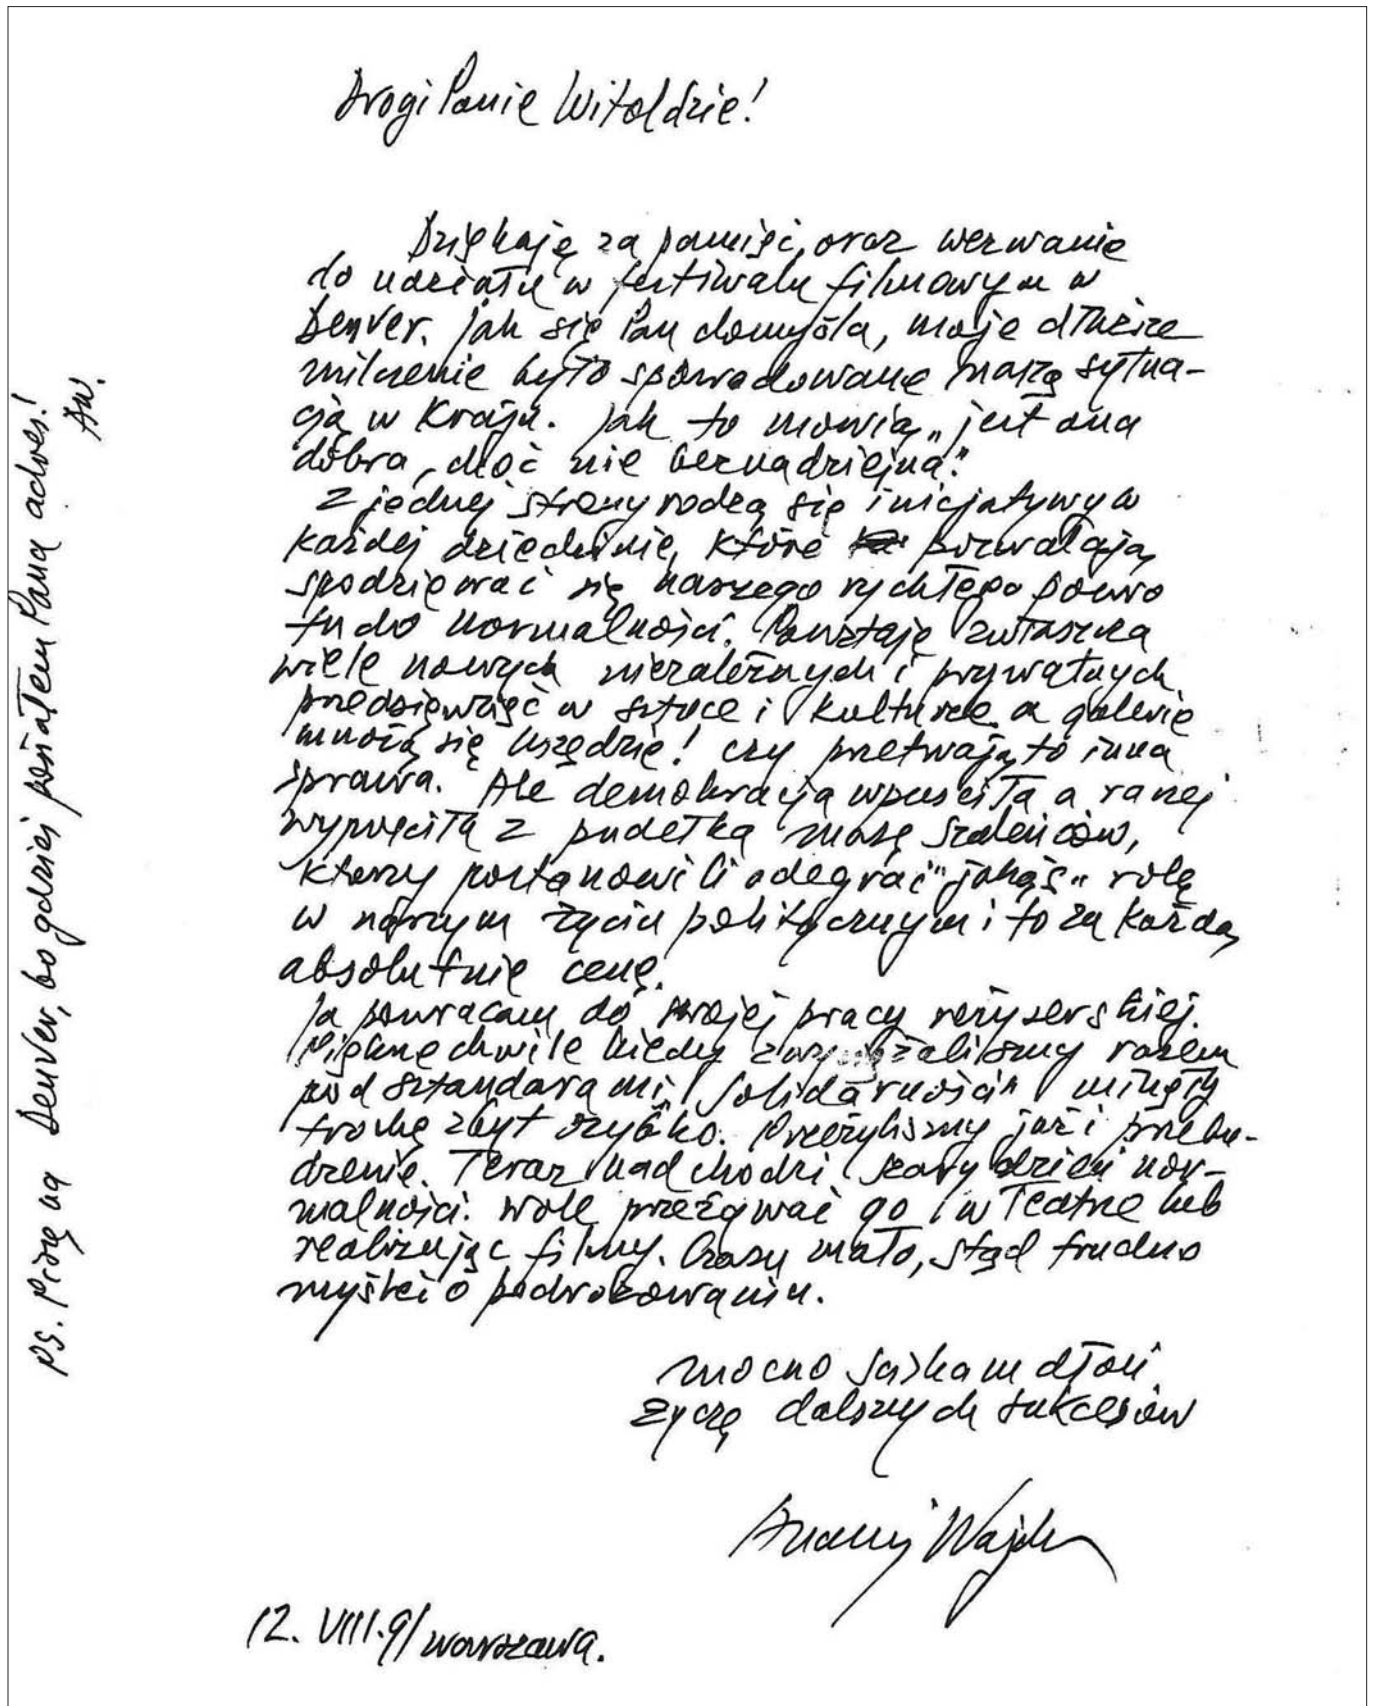 Drogi Panie Witoldzie!
Dziękuję za pamięć, oraz wezwanie
do udziału w festiwalu filmowym w
Denver. Jak się Pan domyśla, moje dłuższe
milczenie było spowodowane naszą sytua-
cją w Kraju. Jak to mówią „jest ona
dobra, choć nie beznadziejna".
Z jednej strony rodzą się inicjatywy w
każdej dziedzinie, które pozwalają
spodziewać się naszego rychłego powro
tu do normalności. Powstaje zwłaszcza
wiele nowych niezależnych i prywatnych
przedsięwzięć w sztuce i kulturze a galerie
mnożą się wszędzie! czy przetrwają to inna
sprawa. Ale demokracja wpuściła a raczej
wypuściła z pudełka masę szaleńców,
którzy postanowili odegrać "jakąś" rolę
w naszym życiu politycznym i to za każdą
absolutnie cenę.
Ja powracam do swojej pracy reżyserskiej.
Piękne chwile kiedy zwyciężaliśmy razem
pod sztandarami „Solidarności" minęły
trochę zbyt szybko. Przeżyliśmy już i przebu-
dzenie. Teraz nadchodzi szary dzień nor-
malności. Wolę przeżywać go w Teatrze lub
realizując filmy. Czasu mało, stąd trudno
myśleć o podróżowaniu.
Mocno ściskam dłoń
Życzę dalszych sukcesów
Andrzej Wajda
12.VIII.91 Warszawa.
PS. Piszę na Denver, bo gdzieś posiałem Pana adres!
AW.